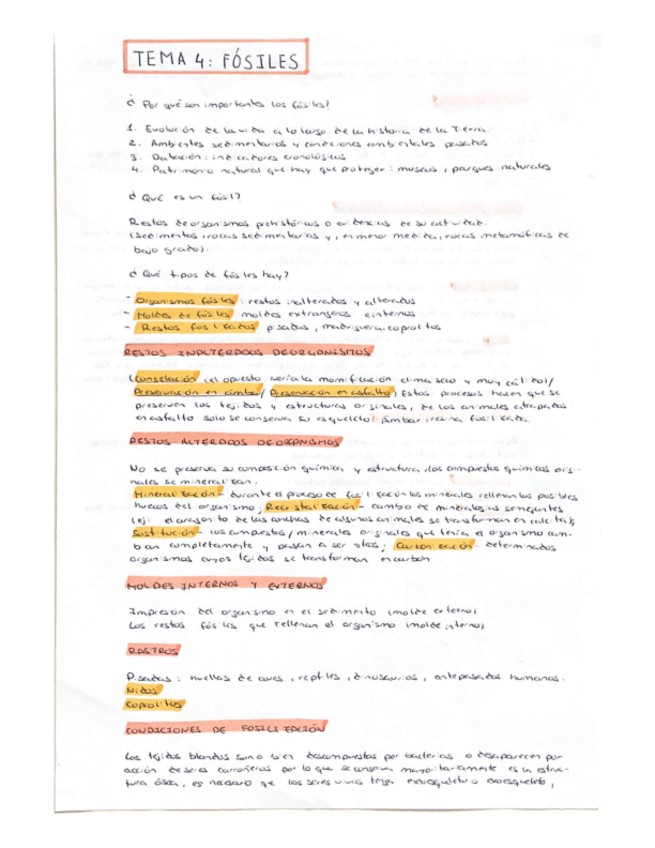 TEMA 4: FÓSILES
¿ Por qué son importantes los fósiles?
1. Evolución de la vida a lo largo de la historia de la Tierra
2. Ambientes sedimentarios y condiciones ambientales pasadas
3. Datación: indicadores cronológicos
4. Patrimonio natural que hay que proteger: museos, parques naturales
¿ Qué es un fósil?
Restos de organismos prehistóricos o evidencias de su actividad.
(sedimentos, rocas sedimentarias y, en menor medida, rocas metamórficas de
bajo grado).
¿ Qué tipos de fósiles hay?
- Organismos fósiles: restos inalterados y alterados
- Moldes de fósiles: moldes externos e internos
- Restos fosilizados: pisadas, madriguera, coprolitos
RESTOS INALTERADOS DE ORGANISMOS
(Congelación (el opuesto sería la momificación clima seco y muy cálido)/
Preservación en ámbar/ Preservación en asfalto) Estos procesos hacen que se
preserven los tejidos y estructuras originales, de los animales atrapados
en asfalto solo se conserva su esqueleto. Ámbar: resina fosilizada.
RESTOS ALTERADOS DE ORGANISMOS
No se preserva su composición química y estructura, los compuestos químicos origi-
nales se mineralizan.
Mineralización - durante el proceso de fosilización los minerales rellenan los posibles
huecos del organismo; Recristalización - cambio de mineralogías semejantes
(ej: el aragonito de las conchas de algunos animales se transforma en calcita);
Sustitución - los compuestos/minerales originales que tenía el organismo cam-
bian completamente y pasan a ser otros; Carbonización - determinados
organismos cuyos tejidos se transforman en carbón
MOLDES INTERNOS Y EXTERNOS
Impresión del organismo en el sedimento (molde externo)
Los restos fósiles que rellenan el organismo (molde interno).
RASTROS
Pisadas: huellas de aves, reptiles, dinosaurios, antepasados humanos.
Nidos
Coprolitos
CONDICIONES DE FOSILIZACIÓN
Los tejidos blandos son o bien descompuestos por bacterias o desaparecen por
acción de seres carroñeros por lo que se conserva mayoritariamente es la estruc-
tura ósea, es necesario que los seres vivos tenga endoesqueleto o exoesqueleto,